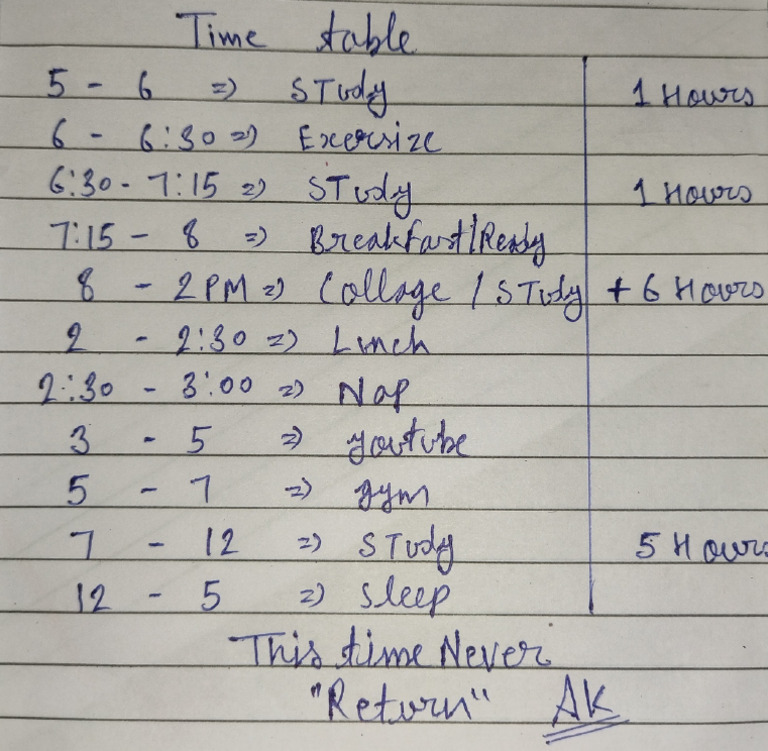 Time table
5 - 6 => Study 1 Hours
6 - 6:30 => Exersize
6:30 - 7:15 => Study 1 Hours
7:15 - 8 => Breakfast/Ready
8 - 2PM => Collage / Study + 6 Hours
2 - 2:30 => Linch
2:30 - 3:00 => Nap
3 - 5 => youtube
5 - 7 => gym
7 - 12 => Study 5 Hours
12 - 5 => sleep
This time Never
"Return" AK